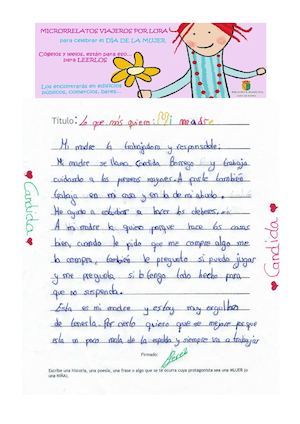 MICRORRELATOS VIAJEROS POR LORA
para celebrar el DÍA DE LA MUJER
Cógelos y léelos, están para eso...
para LEERLOS
Los encontrarás en edificios
públicos, comercios, bares...
Título: Lo que más quiero: Mi madre
Mi madre la trabajadora y responsable;
Mi madre se llama Candida Borrego y trabaja
cuidando a las personas mayores. A parte también
trabaja en mi casa y en la de mi abuelo.
Me ayuda a estudiar a hacer los deberes...
A mi madre la quiero porque hace las cosas
bien, cuando le pido que me compre algo me
lo compra, también le pregunto si puedo jugar
y me pregunta si tengo todo hecho para
que no suspenda.
Esta es mi madre y estoy muy orgulloso
de tenerla. Por cierto quiero que se mejore porque
está un poco mala de la espalda y siempre va a trabajar
Firmado:
Escribe una historia, una poesía, una frase o algo que se te ocurra cuya protagonista sea una MUJER (o
una NIÑA).
Candida
Candida